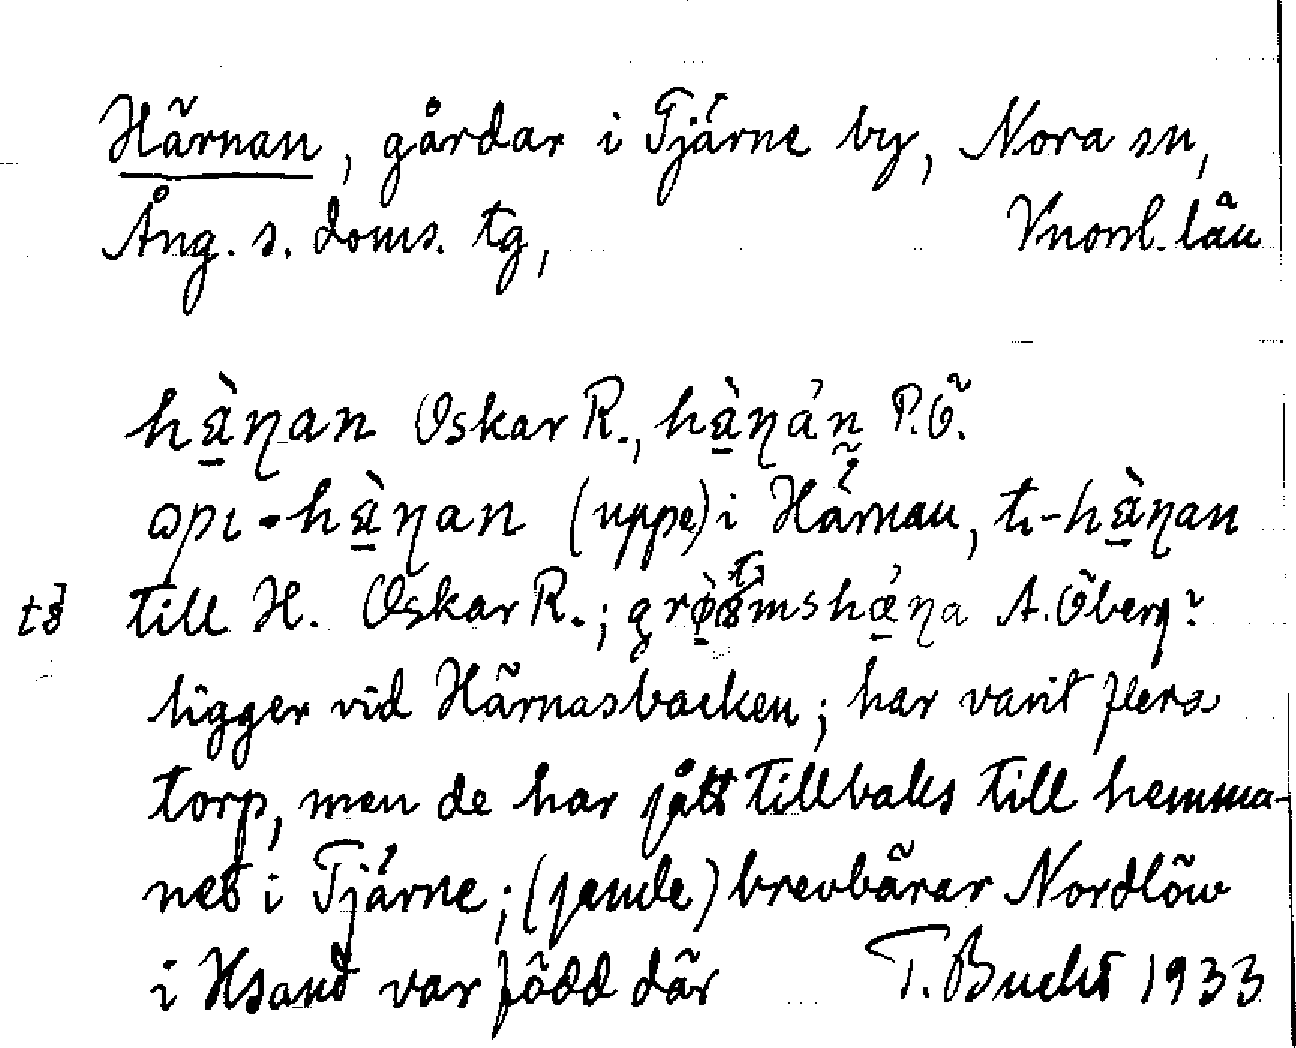 Härnan, gårdar i Tjärne by, Nora sn,
Ång. s. doms. tg, Vnorrl. län
hà̱ṇan Oskar R., hà̱ṇán P.Ö.
opı-hà̱ṇan (uppe) i Härnan, tı-hà̱ṇan
till H. Oskar R.; A. Öberg:
ligger vid Härnasbacken; har varit flera
torp, men de har gått tillbaks till hemma-
net i Tjärne; brevbärar Nordlöw
i Hsand var född där T. Bucht 1933